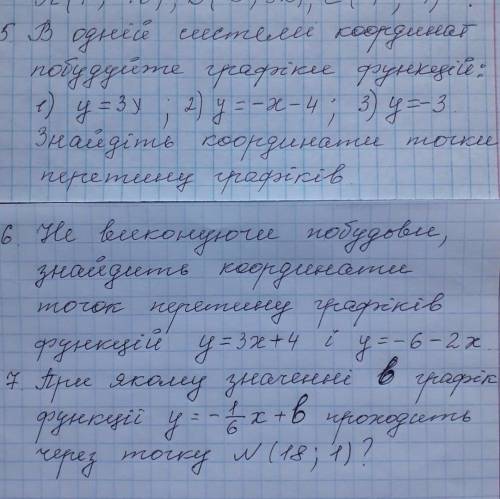 5 В одній системі координат
побудуйте графіки функцій:
1) y=3y ; 2) y=-x-4; 3) y=-3
Знайдіть координати точки
перетину графіків
6 Не виконуючи побудови,
знайдить координати
точок перетину графіків
функцій y=3x+4 і y=-6-2x
7 При якому значенні b графік
функції y=-1/6x+b проходить
через точку N(18; 1)?